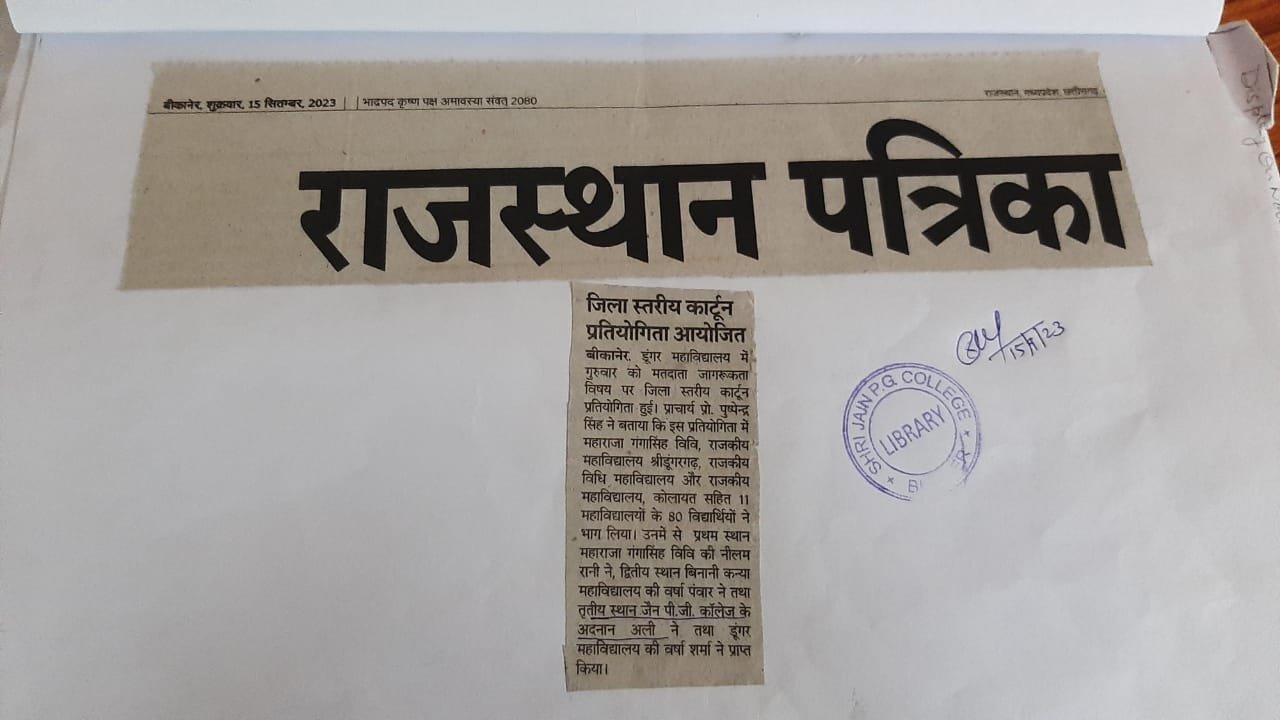 बीकानेर, शुक्रवार, 15 सितम्बर, 2023 | भाद्रपद कृष्ण पक्ष अमावस्या संवत् 2080
राजस्थान, मध्यप्रदेश, छत्तीसगढ़
राजस्थान पत्रिका
जिला स्तरीय कार्टून
प्रतियोगिता आयोजित
बीकानेर. डूंगर महाविद्यालय में
गुरुवार को मतदाता जागरूकता
विषय पर जिला स्तरीय कार्टून
प्रतियोगिता हुई। प्राचार्य प्रो. पुष्पेन्द्र
सिंह ने बताया कि इस प्रतियोगिता में
महाराजा गंगासिंह विवि, राजकीय
महाविद्यालय श्रीडूंगरगढ़, राजकीय
विधि महाविद्यालय और राजकीय
महाविद्यालय, कोलायत सहित 11
महाविद्यालयों के 80 विद्यार्थियों ने
भाग लिया। उनमें से प्रथम स्थान
महाराजा गंगासिंह विवि की नीलम
रानी ने, द्वितीय स्थान बिनानी कन्या
महाविद्यालय की वर्षा पंवार ने तथा
तृतीय स्थान जैन पी.जी. कॉलेज के
अदनान अली ने तथा डूंगर
महाविद्यालय की वर्षा शर्मा ने प्राप्त
किया।
15/9/23
SHRI JAIN P.G. COLLEGE
LIBRARY